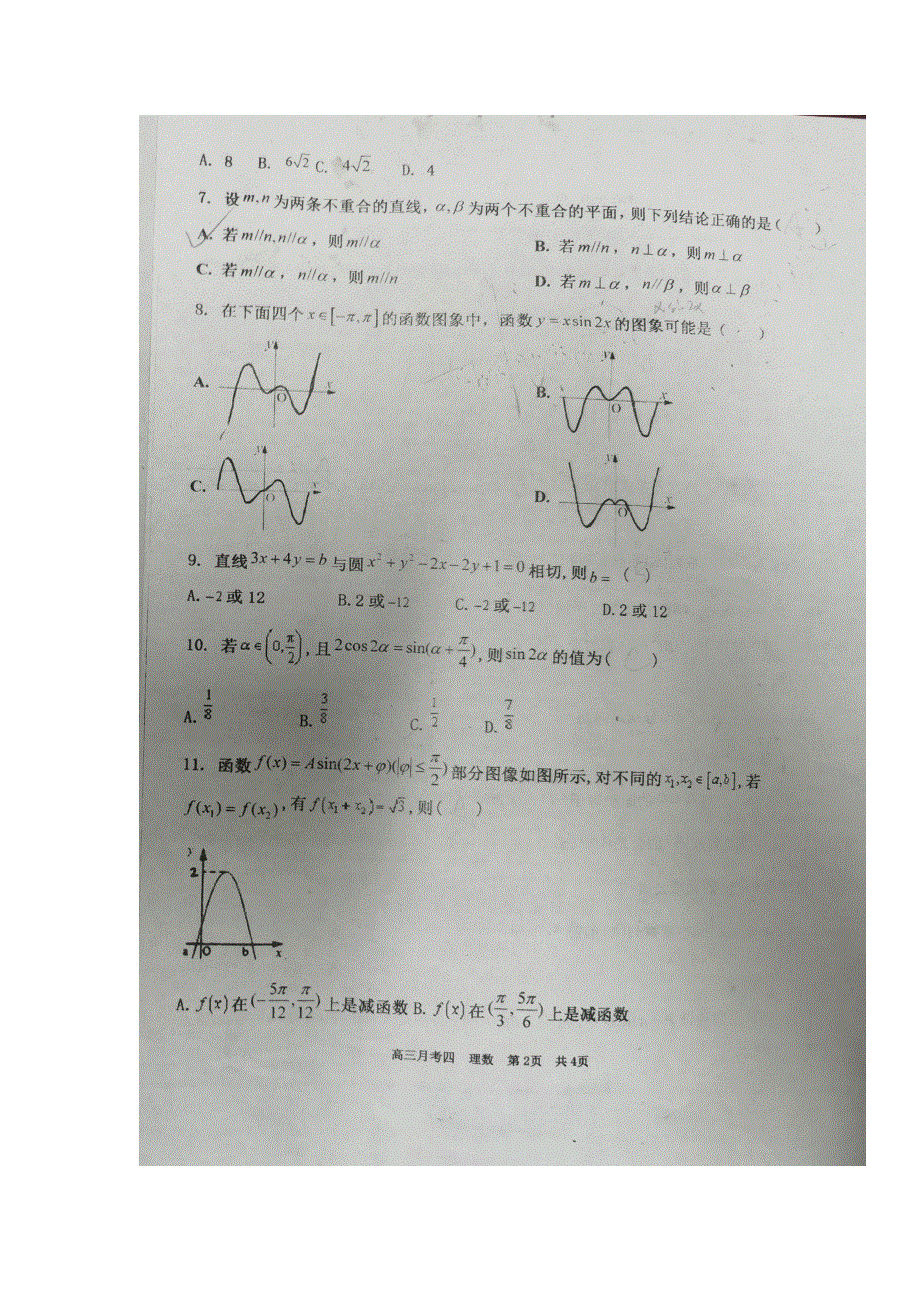 A. 8 B. 6√2 C. 4√2 D. 4
7. 设 m,n 为两条不重合的直线, α,β 为两个不重合的平面, 则下列结论正确的是( )
A. 若 m//n,n//α , 则 m//α B. 若 m//n , n⊥α , 则 m⊥α
C. 若 m//α , n//α , 则 m//n D. 若 m⊥α , n//β , 则 α⊥β
8. 在下面四个 x∈[-π,π] 的函数图象中, 函数 y=xsin2x 的图象可能是 ( )
A. y x O B. y x O
C. y x O D. y x O
9. 直线 3x+4y=b 与圆 x²+y²-2x-2y+1=0 相切, 则 b= ( )
A. -2 或 12 B. 2 或 -12 C. -2 或 -12 D. 2 或 12
10. 若 α∈(0,π/2), 且 2cos2α=sin(α+π/4), 则 sin2α 的值为( )
A. 1/8 B. 3/8 C. 1/2 D. 7/8
11. 函数 f(x)=Asin(2x+φ)(|φ|≤π/2) 部分图像如图所示, 对不同的 x₁,x₂∈[a,b], 若
f(x₁)=f(x₂), 有 f(x₁+x₂)=√3, 则( )
y
2
a O b x
A. f(x) 在 (-5π/12,π/12) 上是减函数 B. f(x) 在 (π/3,5π/6) 上是减函数
高三月考四 理数 第2页 共4页